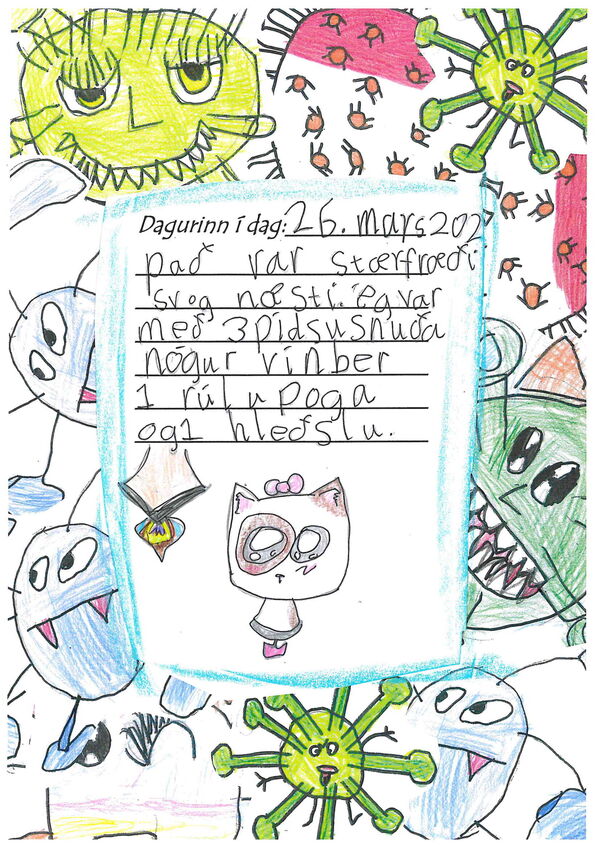 Dagurinn í dag: 26. mars 202
það var stærfræði
svog næsti. ég var
með 3 pidsusnuða
nógur vínber
1 rúlupoga
og 1 hleðslu.